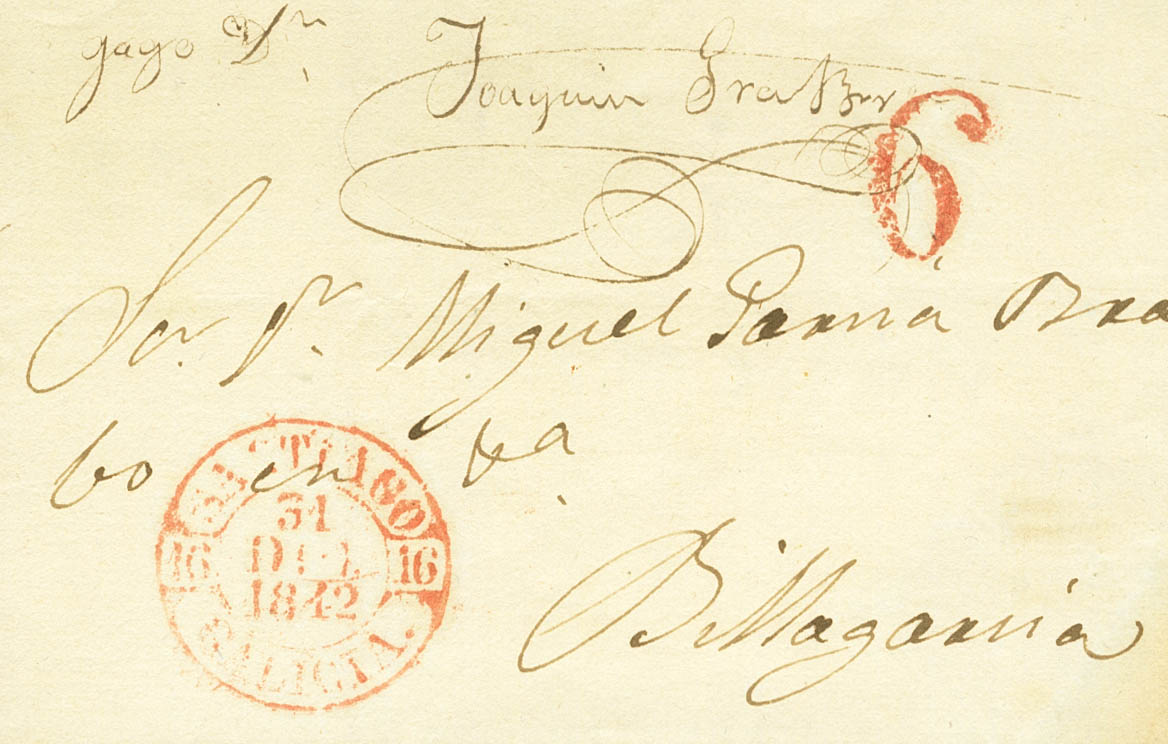 Dn Joaquin
6
Sor. Dn. Miguel Garcia Bra
bo en
Villagarcia
SANTIAGO
31
DIC.
1842
16 16
GALICIA.